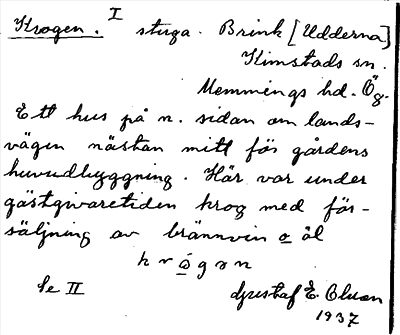 Krogen. I stuga. Brink [Udderna]
Kimstads sn.
Memmings hd. Ög.
Ett hus på n. sidan om lands-
vägen nästan mitt för gårdens
huvudbyggning. Här var under
gästgivaretiden krog med för-
säljning av brännvin o öl
krógən
Se II
Gustaf E. Olsson
1937